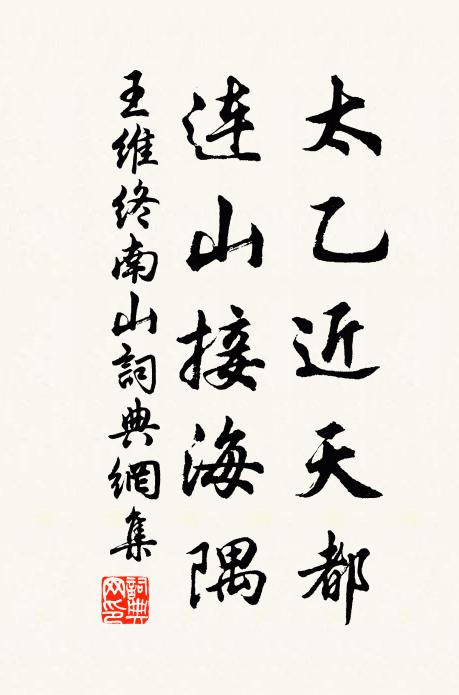 太乙近天都
连山接海隅
王維终南山詞典網集
詞典網印